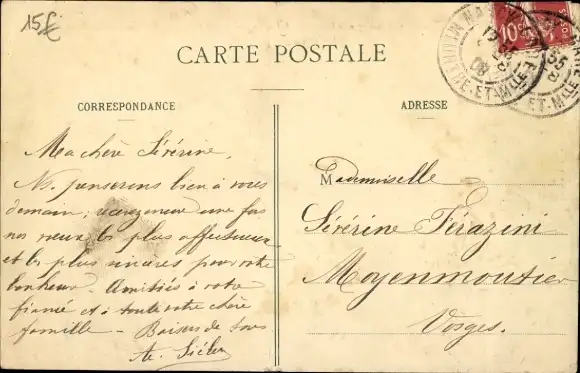 15£
CARTE POSTALE
CORRESPONDANCE
Ma chère Sérérine,
Ns. penserons bien à vous
demain; recevez encore une fois
nos vœux les plus affectueux
et les plus sincères pour votre
bonheur. Amitiés à votre
fiancé et à toute votre chère
famille - Baisers de tous
ADRESSE
Mademoiselle
Sérérine Férazini
Moyenmoutier
Vosges.
10c
ET-MLLE